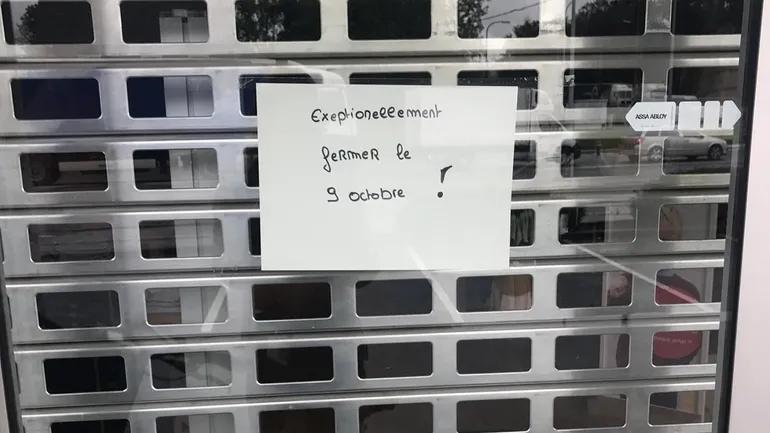 Exeptionellement
fermer le
9 octobre !
ASSA ABLOY